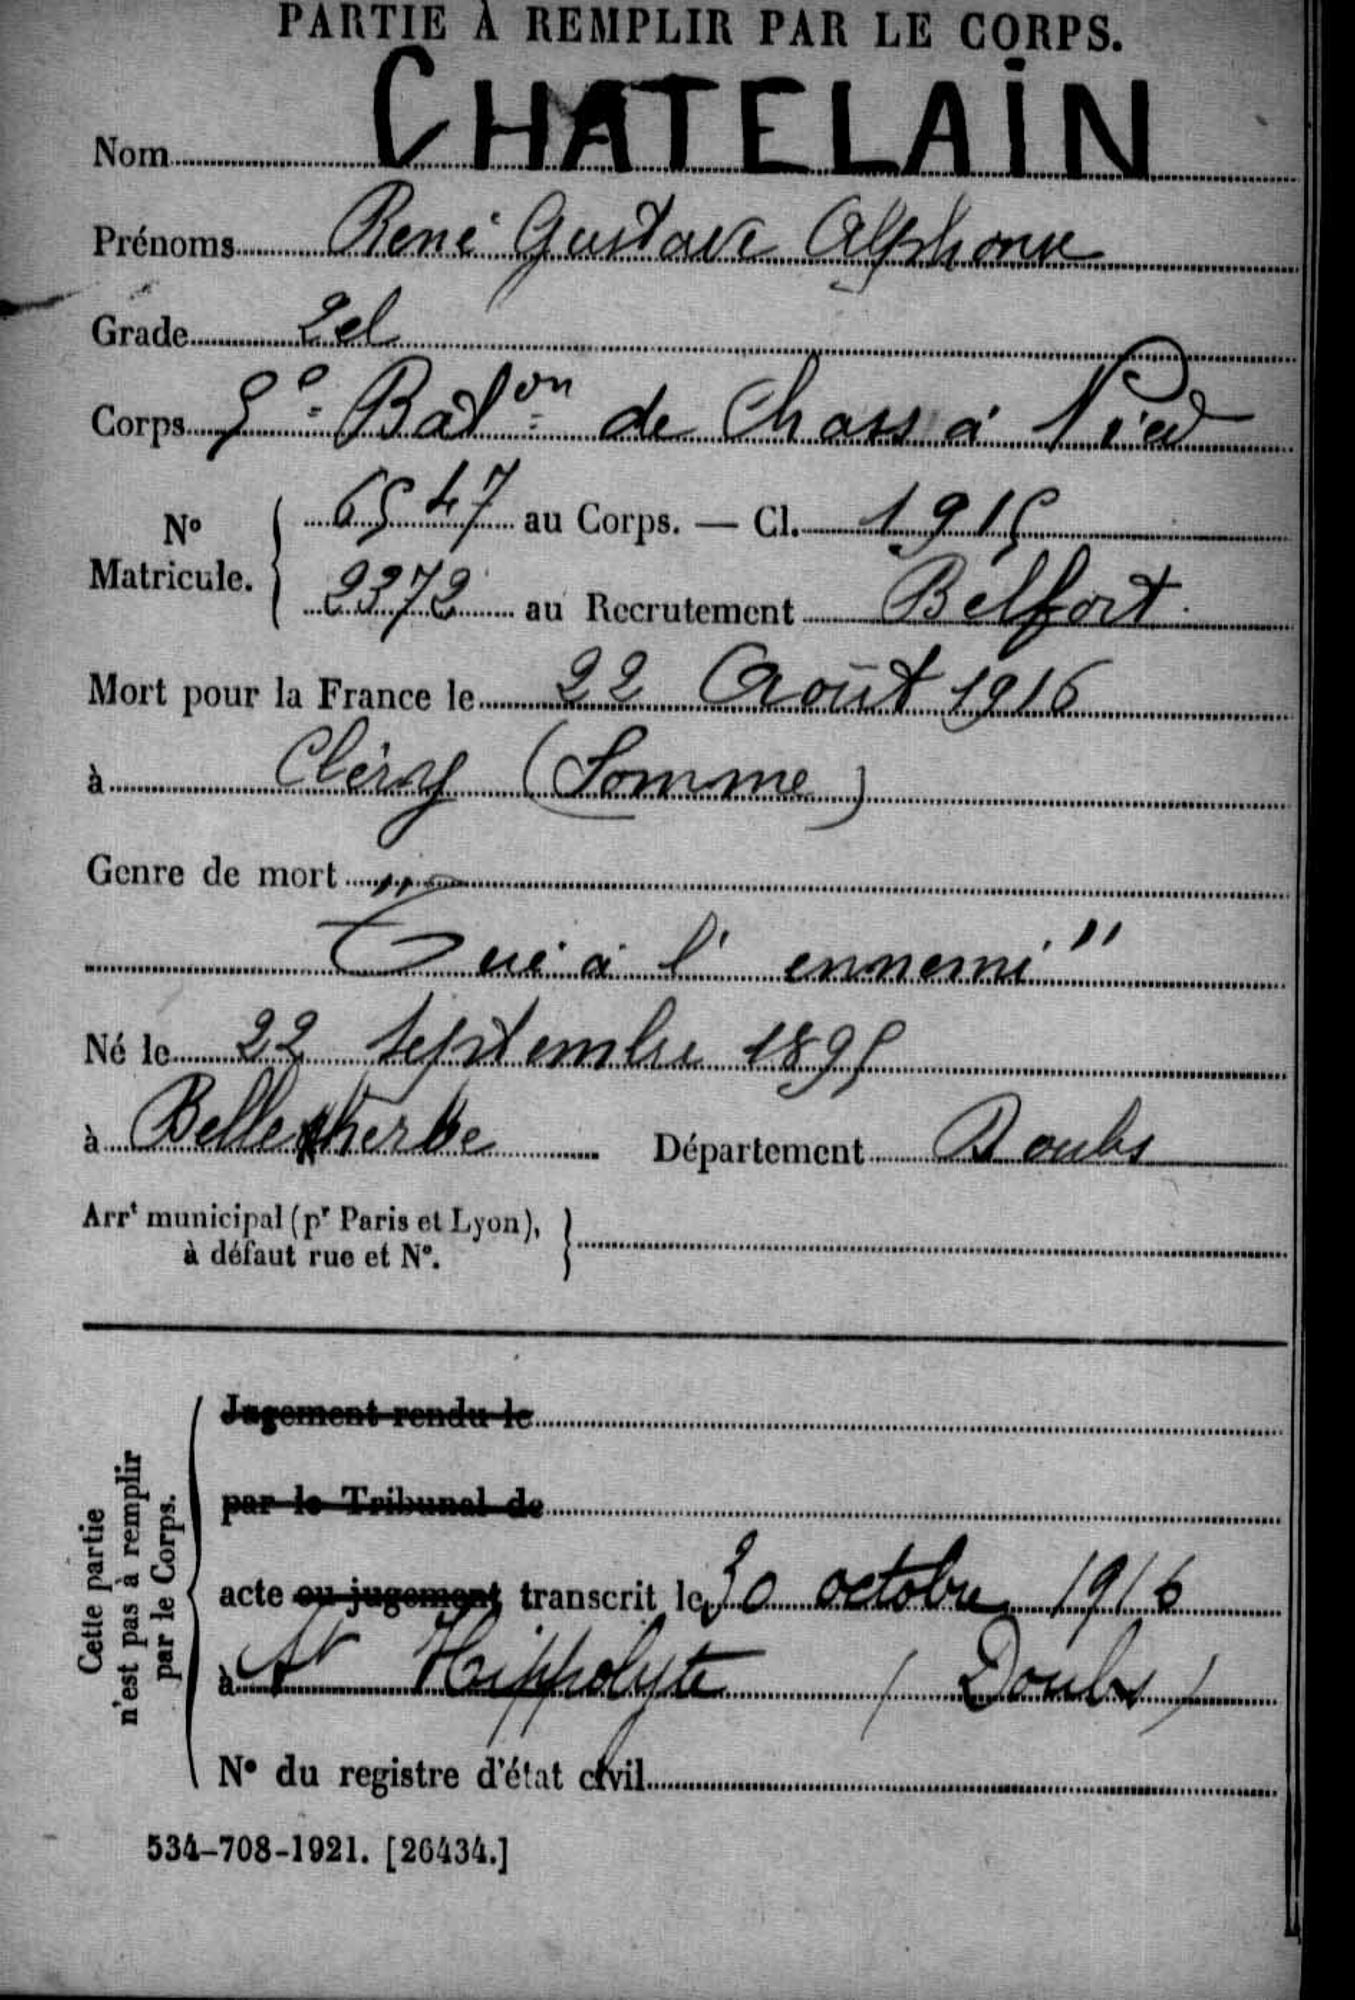 PARTIE À REMPLIR PAR LE CORPS.
Nom CHATELAIN
Prénoms René Gustave Alphonse
Grade 2cl
Corps 5e Baton de Chass à Pied
No Matricule. 6547 au Corps. — Cl. 1915
2372 au Recrutement Belfort.
Mort pour la France le 22 Août 1916
à Cléry (Somme)
Genre de mort
"Tué à l'ennemi"
Né le 22 Septembre 1895
à Belleherbe Département Doubs
Arrt municipal (pr Paris et Lyon),
à défaut rue et No.
Cette partie
n'est pas à remplir
par le Corps.
Jugement rendu le
par le Tribunal de
acte ou jugement transcrit le 30 octobre 1916
à St Hippolyte (Doubs)
No du registre d'état civil
534-708-1921. [26434.]